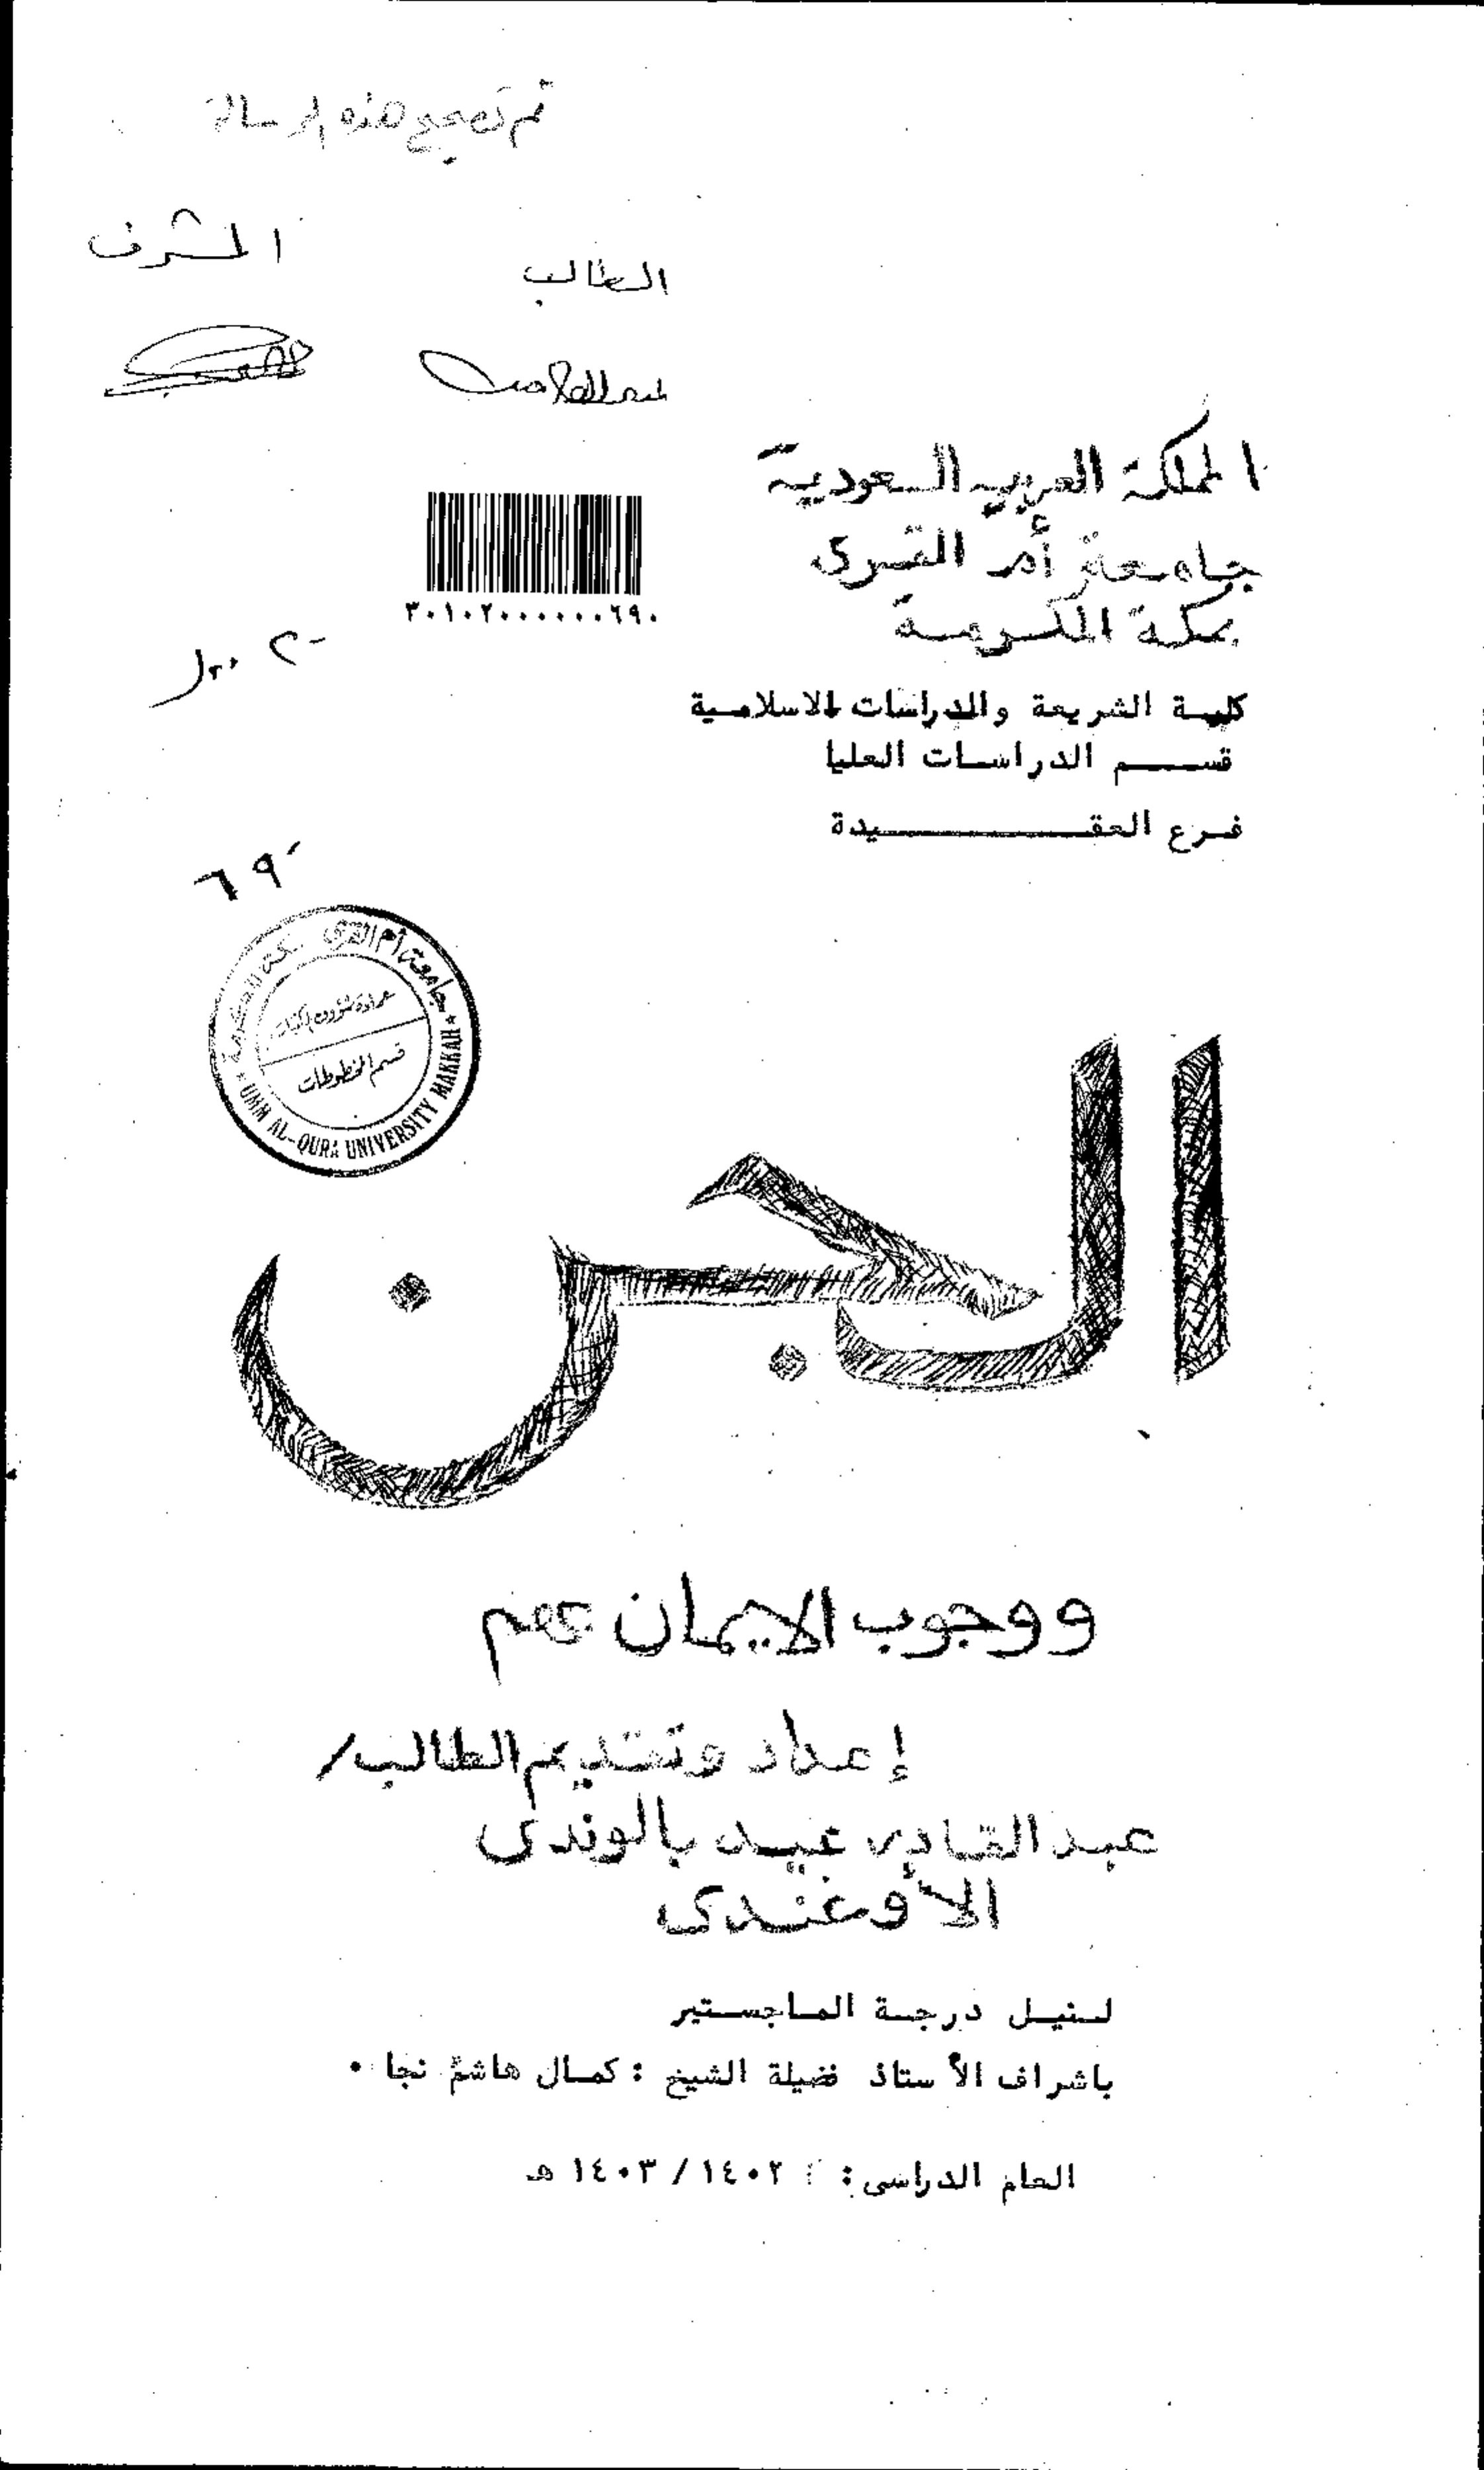 تم تصحيح هذه الرسالة
المشرف
الطالب
المملكة العربية السعودية
جامعة أم القرى
بمكة المكرمة
٣٠١٠٢٠٠٠٠٠٠٦٩٠
كلية الشريعة والدراسات الاسلامية
قسم الدراسات العليا
فرع العقيدة
٦٩٠
جامعة أم القرى بمكة المكرمة
عمادة شؤون المكتبات
قسم المخطوطات
UMM AL-QURA UNIVERSITY MAKKAH
الجن
ووجوب الايمان بهم
إعداد وتقديم الطالب/
عبد القادر عبيد بالوندى
الأوغندى
لنيل درجة الماجستير
باشراف الأستاذ فضيلة الشيخ : كمال هاشم نجا .
العام الدراسى : ١٤٠٢ / ١٤٠٣ هـ